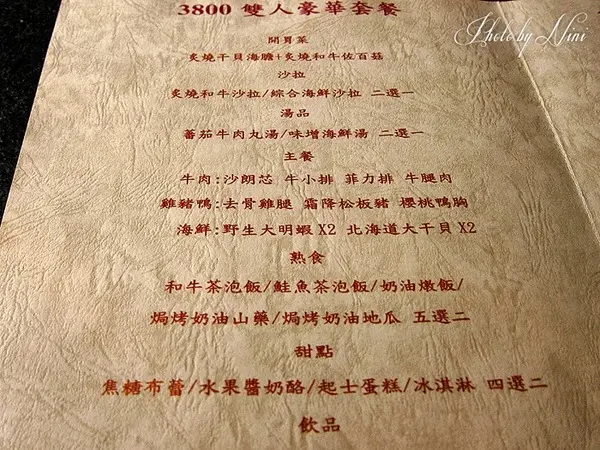 Photo by Nini
3800 雙人豪華套餐
開胃菜
炙燒干貝海膽+炙燒和牛佐百菇
沙拉
炙燒和牛沙拉/綜合海鮮沙拉 二選一
湯品
蕃茄牛肉丸湯/味增海鮮湯 二選一
主餐
牛肉:沙朗芯 牛小排 菲力排 牛腿肉
雞豬鴨:去骨雞腿 霜降松板豬 櫻桃鴨胸
海鮮:野生大明蝦X2 北海道大干貝X2
熟食
和牛茶泡飯/鮭魚茶泡飯/奶油燉飯/
焗烤奶油山藥/焗烤奶油地瓜 五選二
甜點
焦糖布蕾/水果醬奶酪/起士蛋糕/冰淇淋 四選二
飲品